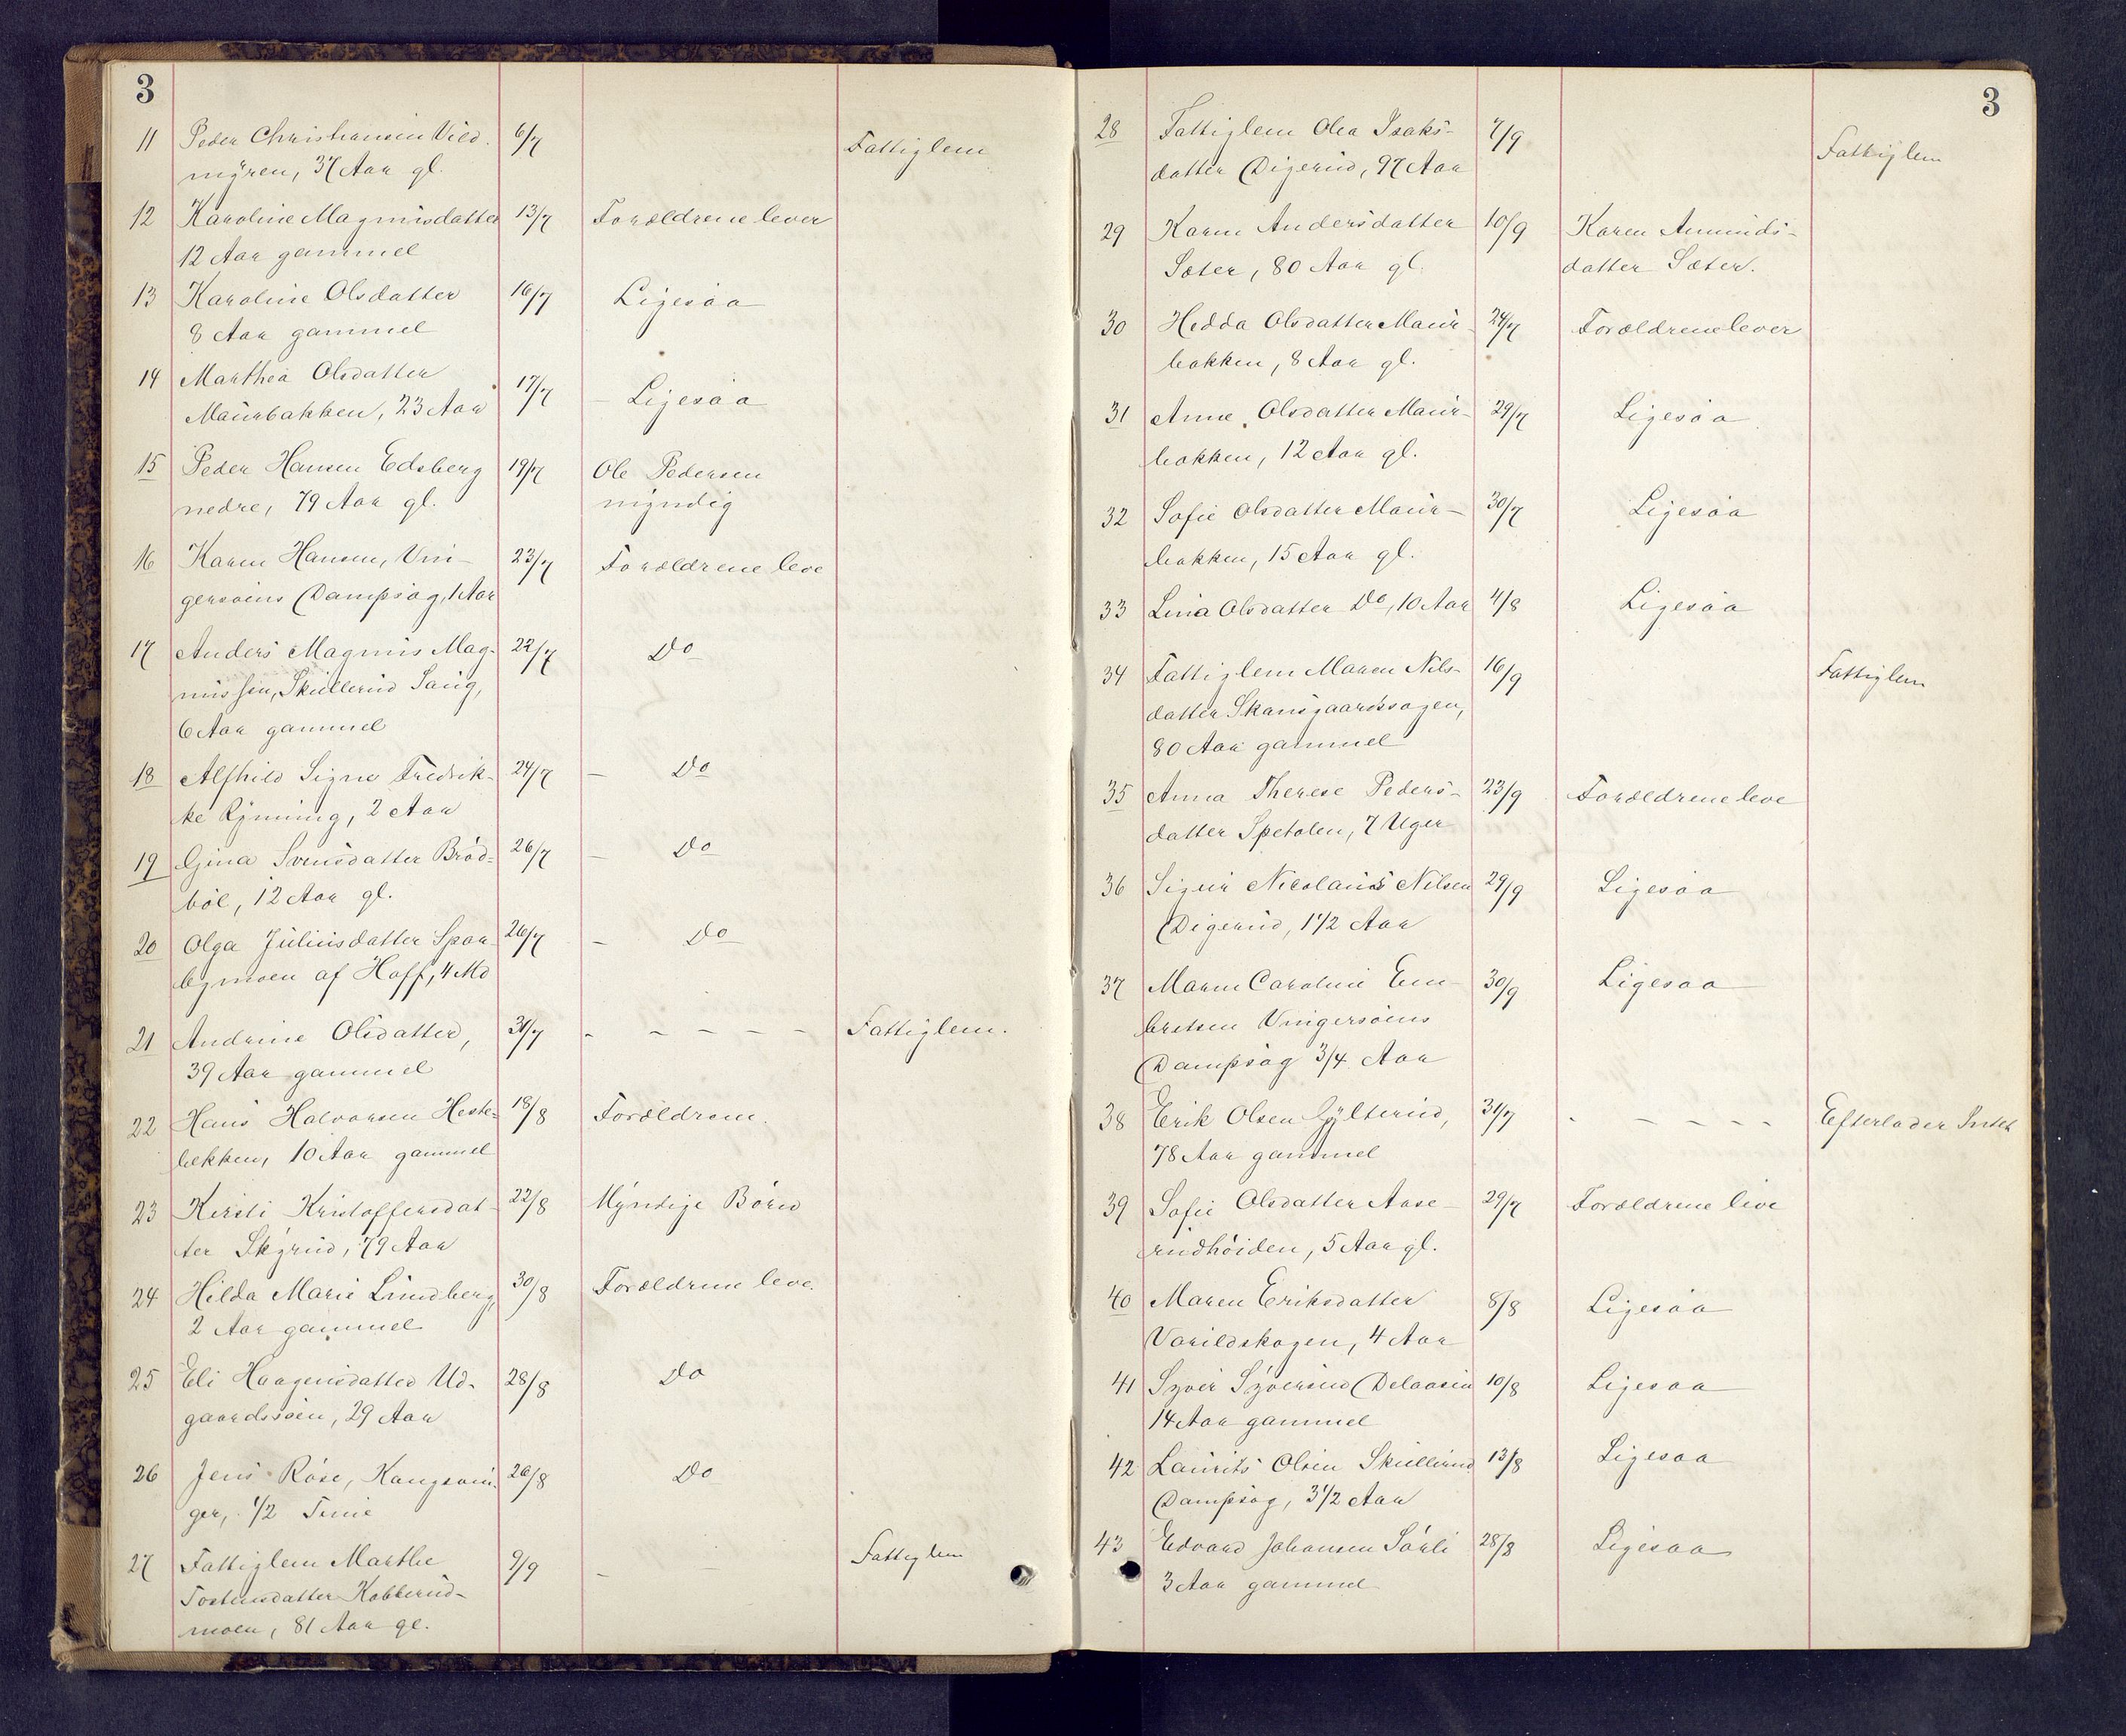 3
11 Peder Christiansen Vild- 6/7 Fattiglem
myren, 37 Aar gl.
12 Karoline Magnusdatter 13/7 Forældrene lever
12 Aar gammel
13 Karoline Olsdatter 16/7 Ligesaa
8 Aar gammel
14 Marthea Olsdatter 17/7 – Ligesaa
Maurbakken, 23 Aar
15 Peder Hansen Edsberg 19/7 Ole Pedersen
nedre, 79 Aar gl. myndig
16 Karen Hansen, Vin- 23/7 Forældrene leve
gersøens Dampsag, 1 Aar
17 Anders Magnus Mag- 22/7 Do
nussen, Skullerud Saug,
6 Aar gammel
18 Alfhild Signe Fredrik- 24/7 – Do
ke Rynning, 2 Aar
19 Gina Svensdatter Brød- 26/7 – Do
bøl, 12 Aar gl.
20 Olga Juliusdatter Spar- 26/7 – Do
bymoen af Hoff, 4 Md
21 Andrine Olsdatter, 31/7 - - - - - Fattiglem.
39 Aar gammel
22 Hans Halvorsen Heste- 18/8 Forældrene.
bekken, 10 Aar gammel
23 Kersti Kristoffersdat- 22/8 Myndige Børn
ter Skyrud, 79 Aar
24 Hilda Marie Lundberg, 30/8 Forældrene leve.
2 Aar gammel
25 Eli Haagensdatter Ud- 28/8 Do
gaardssøen, 29 Aar
26 Jens Røse, Kongsvin- 26/8 Do
ger, 1/2 Time
27 Fattiglem Marthe 9/9 – – Fattiglem
Tostensdatter Kobberud-
moen, 81 Aar gl.
3
28 Fattiglem Olea Isaks- 7/9 Fattiglem
datter Digerud, 97 Aar
29 Karen Andersdatter 10/9 Karen Amunds-
Sæter, 80 Aar gl. datter Sæter.
30 Hedda Olsdatter Maur- 24/7 Forældrene lever
bakken, 8 Aar gl.
31 Anne Olsdatter Maur- 29/7 Ligesaa
bakken, 12 Aar gl.
32 Sofie Olsdatter Maur- 30/7 Ligesaa
bakken, 15 Aar gl.
33 Lina Olsdatter Do, 10 Aar 4/8 Ligesaa
34 Fattiglem Maren Nils- 16/9 Fattiglem
datter Skansgaardsskogen,
80 Aar gammel
35 Anna Therese Peders- 23/9 Forældrene leve
datter Spetalen, 7 Uger
36 Sigur Nicolaus Nilsen 29/9 Ligesaa
Digerud, 1 1/2 Aar
37 Maren Caroline Em- 30/9 Ligesaa
bretsen Vingersøens
Dampsag 3/4 Aar
38 Erik Olsen Gylterud, 31/7 - - - - - Efterlader Intet
78 Aar gammel
39 Sofie Olsdatter Aase- 29/7 Forældrene leve
rudhøiden, 5 Aar gl.
40 Maren Eriksdatter 8/8 Ligesaa
Varildskogen, 4 Aar
41 Syver Syversen Delaasen 10/8 Ligesaa
14 Aar gammel
42 Laurits Olsen Skullerud 13/8 Ligesaa
Dampsag, 3 1/2 Aar
43 Edvard Johansen Sørli 28/8 Ligesaa
3 Aar gammel